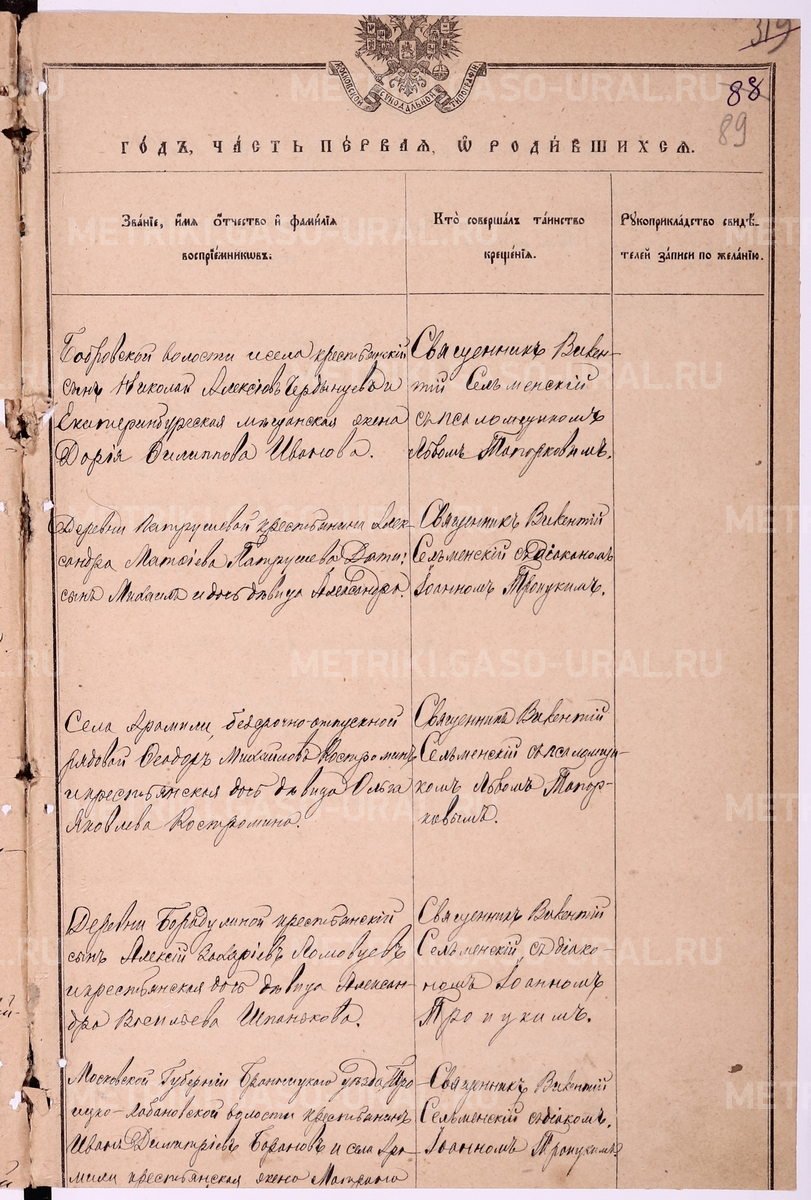 319
88
89
МОСКОВСКОЙ СУНОДАЛЬНОЙ ТИПОГРАФІИ
ГО́ДЪ, ЧА́СТЬ ПЕ́РВАЯ, Ѽ РОДИ́ВШИХСЯ.
Зва́ніе, и́мя ѻ҆́тчество и҆ фами́лія
воспріе́мникѡвъ.
Кто̀ соверша́лъ та́инство
креще́нія.
Рꙋкоприкла́дство свидѣ́-
телей за́писи по жела́нію.
Бобровской волости и села крестьянскій
сынъ Николай Алексѣевъ Чердынцевъ и
Екатеринбургская мѣщанская жена
Дарія Филиппова Иванова.
Священникъ Викен-
тій Сельменскій
съ псаломщикомъ
Львомъ Топорковымъ.
Деревни Патрушевой крестьянина Алек-
сандра Матѳіева Патрушева дѣти:
сынъ Михаилъ и дочь дѣвица Александра.
Священникъ Викентій
Сельменскій съ діакономъ
Іоанномъ Тропукимъ.
Села Арамили, безсрочно-отпускной
рядовой Ѳеодоръ Михайловъ Костроминъ
и крестьянская дочь дѣвица Ольга
Яковлева Костромина.
Священникъ Викентій
Сельменскій съ псаломщи-
комъ Львомъ Топор-
ковымъ.
Деревни Бородулиной крестьянскій
сынъ Алексій Захаріевъ Ломовцевъ
и крестьянская дочь дѣвица Алексан-
дра Васильева Шпанькова.
Священникъ Викентій
Сельменскій съ діако-
номъ Іоанномъ
Тропукимъ.
Московской Губерніи Бронницкаго уѣзда, Тро-
ицко-Лобановской волости крестьянинъ
Иванъ Димитріевъ Борановъ и села Ара-
мили крестьянская жена Матрона
Священникъ Викентій
Сельменскій съ діаком.
Іоанномъ Тропукимъ
METRIKI.GASO-URAL.RU